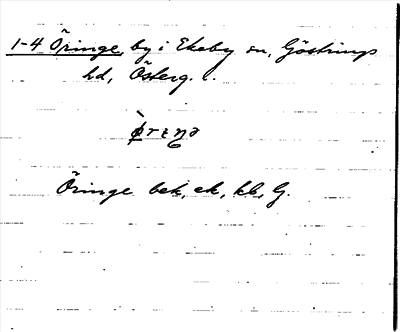 1-4 Öringe, by i Ekeby sn, Göstrings
hd, Österg. l.
Öringe bek, ek, kb, G.